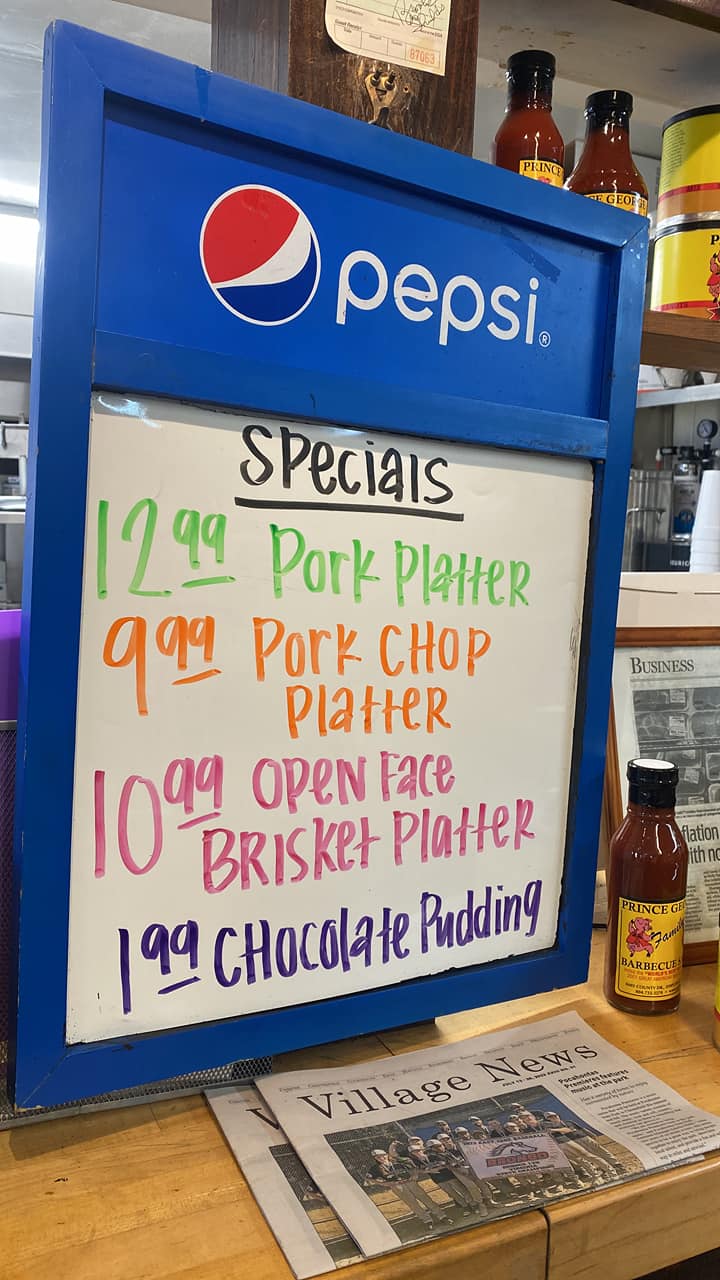 87063
PRINCE
CE GEORGE
pepsi®
SPECIALS
12.99 Pork Platter
9.99 Pork CHOP
Platter
10.99 OPEN Face
BRISKet Platter
1.99 CHocolate Pudding
BUSINESS
flation
ith no
PRINCE GE
Family
BARBECUE S
Village News
Pocahontas
Premieres features
music at the park